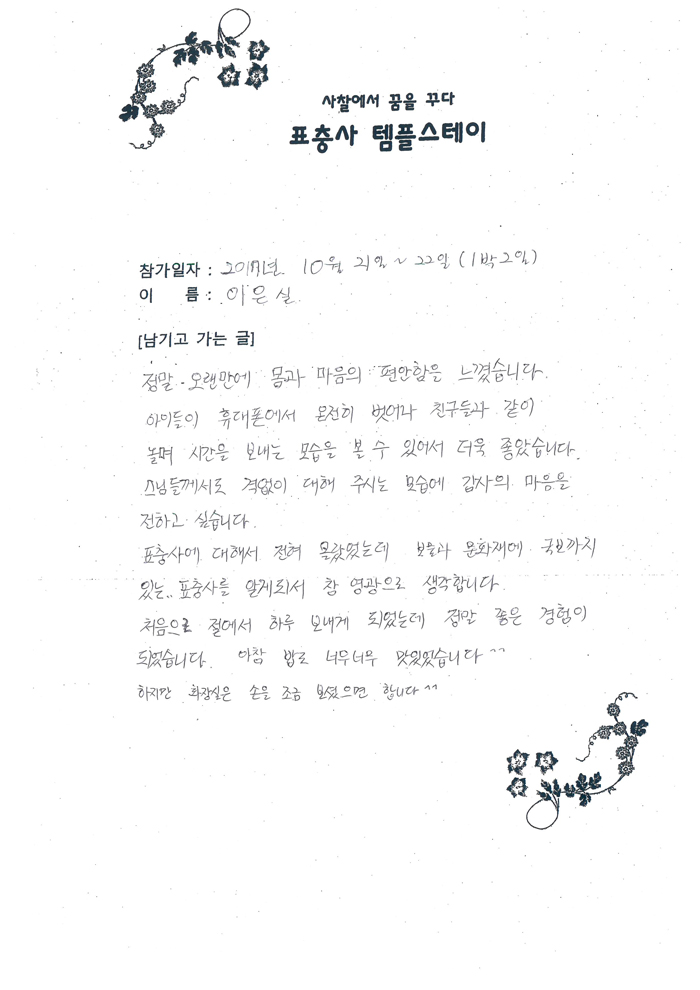 사찰에서 꿈을 꾸다
표충사 템플스테이
참가일자 : 2017년 10월 21일 ~ 22일 (1박2일)
이 름 : 이은실
[남기고 가는 글]
정말 오랜만에 몸과 마음의 편안함을 느꼈습니다.
아이들이 휴대폰에서 온전히 벗어나 친구들과 같이
놀며 시간을 보내는 모습을 볼 수 있어서 더욱 좋았습니다.
스님들께서도 격없이 대해 주시는 모습에 감사의 마음을
전하고 싶습니다.
표충사에 대해서 전혀 몰랐었는데 보물과 문화재에 국보까지
있는.. 표충사를 알게되서 참 영광으로 생각합니다.
처음으로 절에서 하루 보내게 되었는데 정말 좋은 경험이
되었습니다. 아참 밥도 너무너무 맛있었습니다 ^^
하지만 화장실은 손을 조금 보셨으면 합니다 ^^